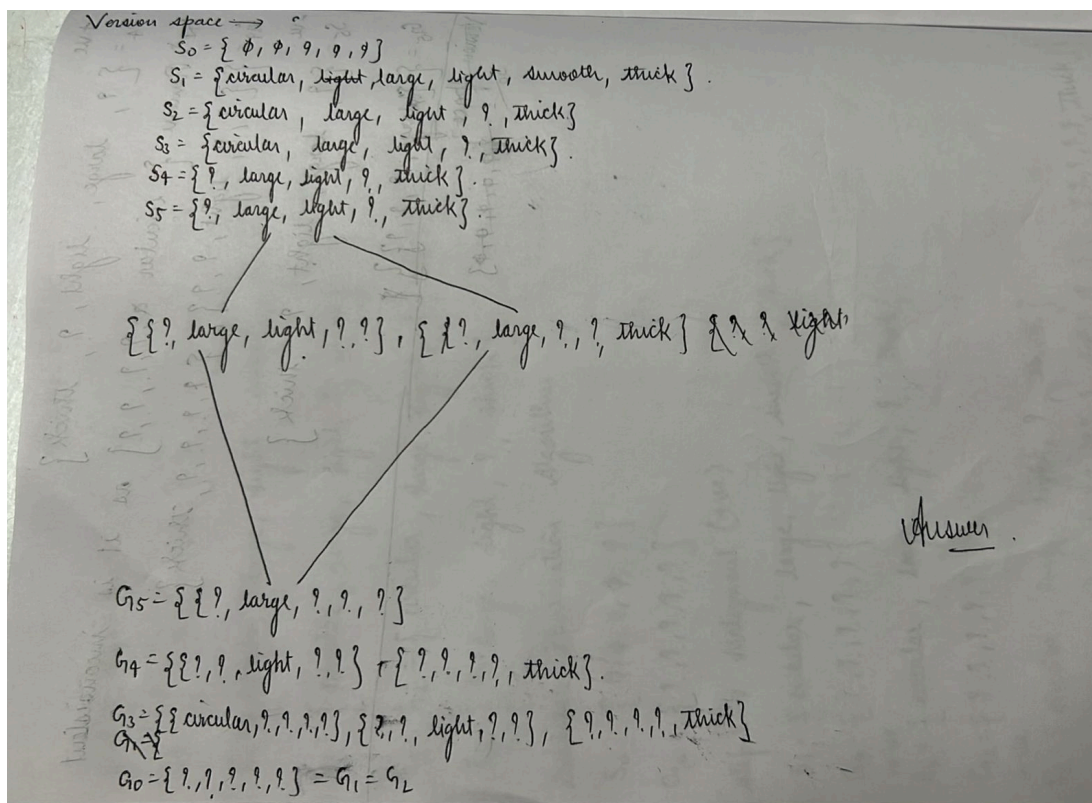 Version space →
S0 = { φ, φ, φ, φ, φ}
S1 = {circular, light, large, light, smooth, thick}.
S2 = {circular, large, light, ?, thick}
S3 = {circular, large, light, ?, thick}.
S4 = {?, large, light, ?, thick}.
S5 = {?, large, light, ?, thick}.
{{?, large, light, ?, ?}, {{?, large, ?, ?, thick} {{? ? light,
Answer.
G5 = {{?, large, ?, ?, ?}
G4 = {{?, ?, light, ?, ?} , {?, ?, ?, ?, thick}.
G3 = {{circular, ?, ?, ?, ?}, {?, ?, light, ?, ?}, {?, ?, ?, ?, thick}
G1 = {
G0 = {?, ?, ?, ?, ?} = G1 = G2